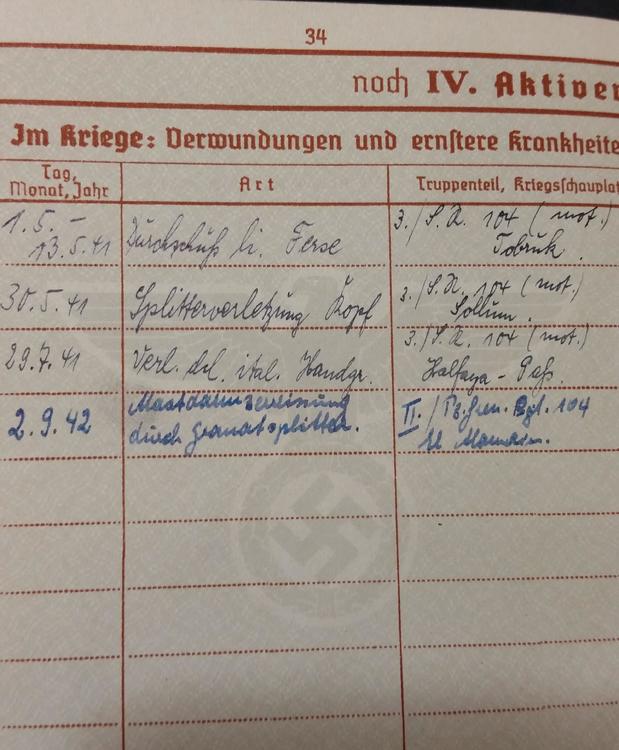 34
noch IV. Aktiver
Im Kriege: Verwundungen und ernstere Krankheite
Tag, Monat, Jahr
Art
Truppenteil, Kriegsschauplat
1.5. – 13.5.41
Durchschuß li. Ferse
3./S.R. 104 (mot.)
Tobruk.
30.5.41
Splitterverletzung Kopf
3./S.R. 104 (mot.)
Sollum.
29.7.41
Verl. dch. ital. Handgr.
3./S.R. 104 (mot.)
Halfaya-Paß.
2.9.42
Mastdarmzerreisung
durch Granatsplitter.
II./Pz.Gren. Rgt. 104
El Alamein.